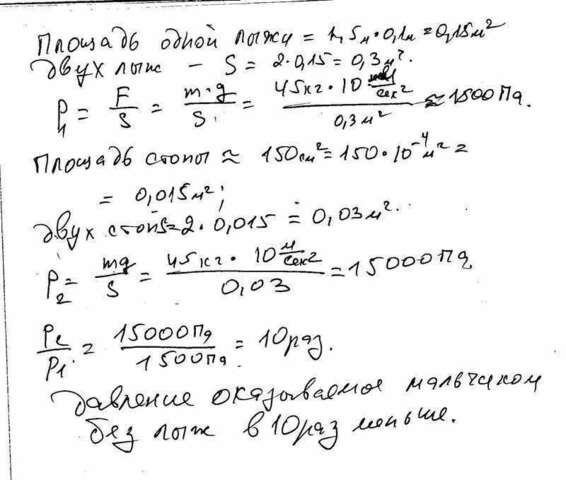 Площадь одной лыжи = 1,5м·0,1м=0,15м²
двух лыж – S = 2·0,15=0,3м².
P₁ = F/S = m·g/S = 45кг·10 м/сек² / 0,3м² ≈ 1500Па.
Площадь стопы ≈ 150см²=150·10⁻⁴м² =
= 0,015м²;
двух стоп S=2·0,015 = 0,03м².
P₂ = mg/S = 45кг·10 м/сек² / 0,03 = 15000Па
P₂/P₁ = 15000Па/1500Па = 10раз.
давление оказываемое мальчиком
без лыж в 10раз меньше.